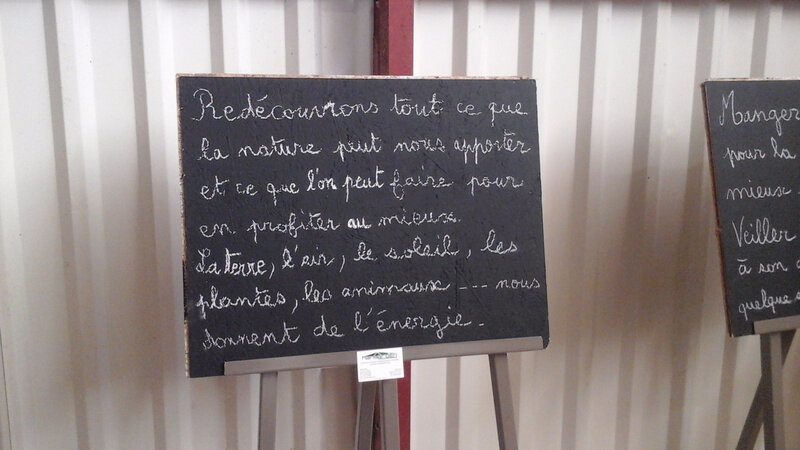 Redécouvrons tout ce que
la nature peut nous apporter
et ce que l'on peut faire pour
en profiter au mieux.
La terre, l'air, le soleil, les
plantes, les animaux --- nous
donnent de l'énergie.
Manger
pour la
mieux
Veiller
à son
quelque